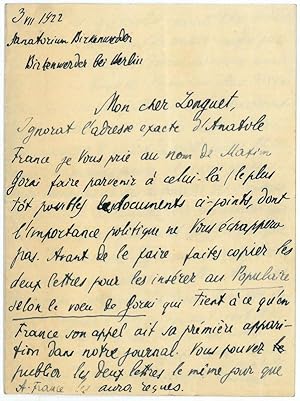 3 VII 1922
Sanatorium Birkenwerder
Birkenwerder bei Berlin
Mon cher Longuet,
Ignorat l'adresse exacte d'Anatole
France je Vous prie au nom de Maxim
Gorki faire parvenir à celui-là (le plus
tôt possible) les documents ci-joints, dont
l'importance politique ne Vous échappera
pas. Avant de le faire faites copier les
deux lettres pour les insérer au Populaire
selon le voeu de Gorki qui tient à ce qu'en
France son appel ait sa première appari-
tion dans notre journal. Vous pouvez
publier les deux lettres le même jour que
A. France les aura reçues.